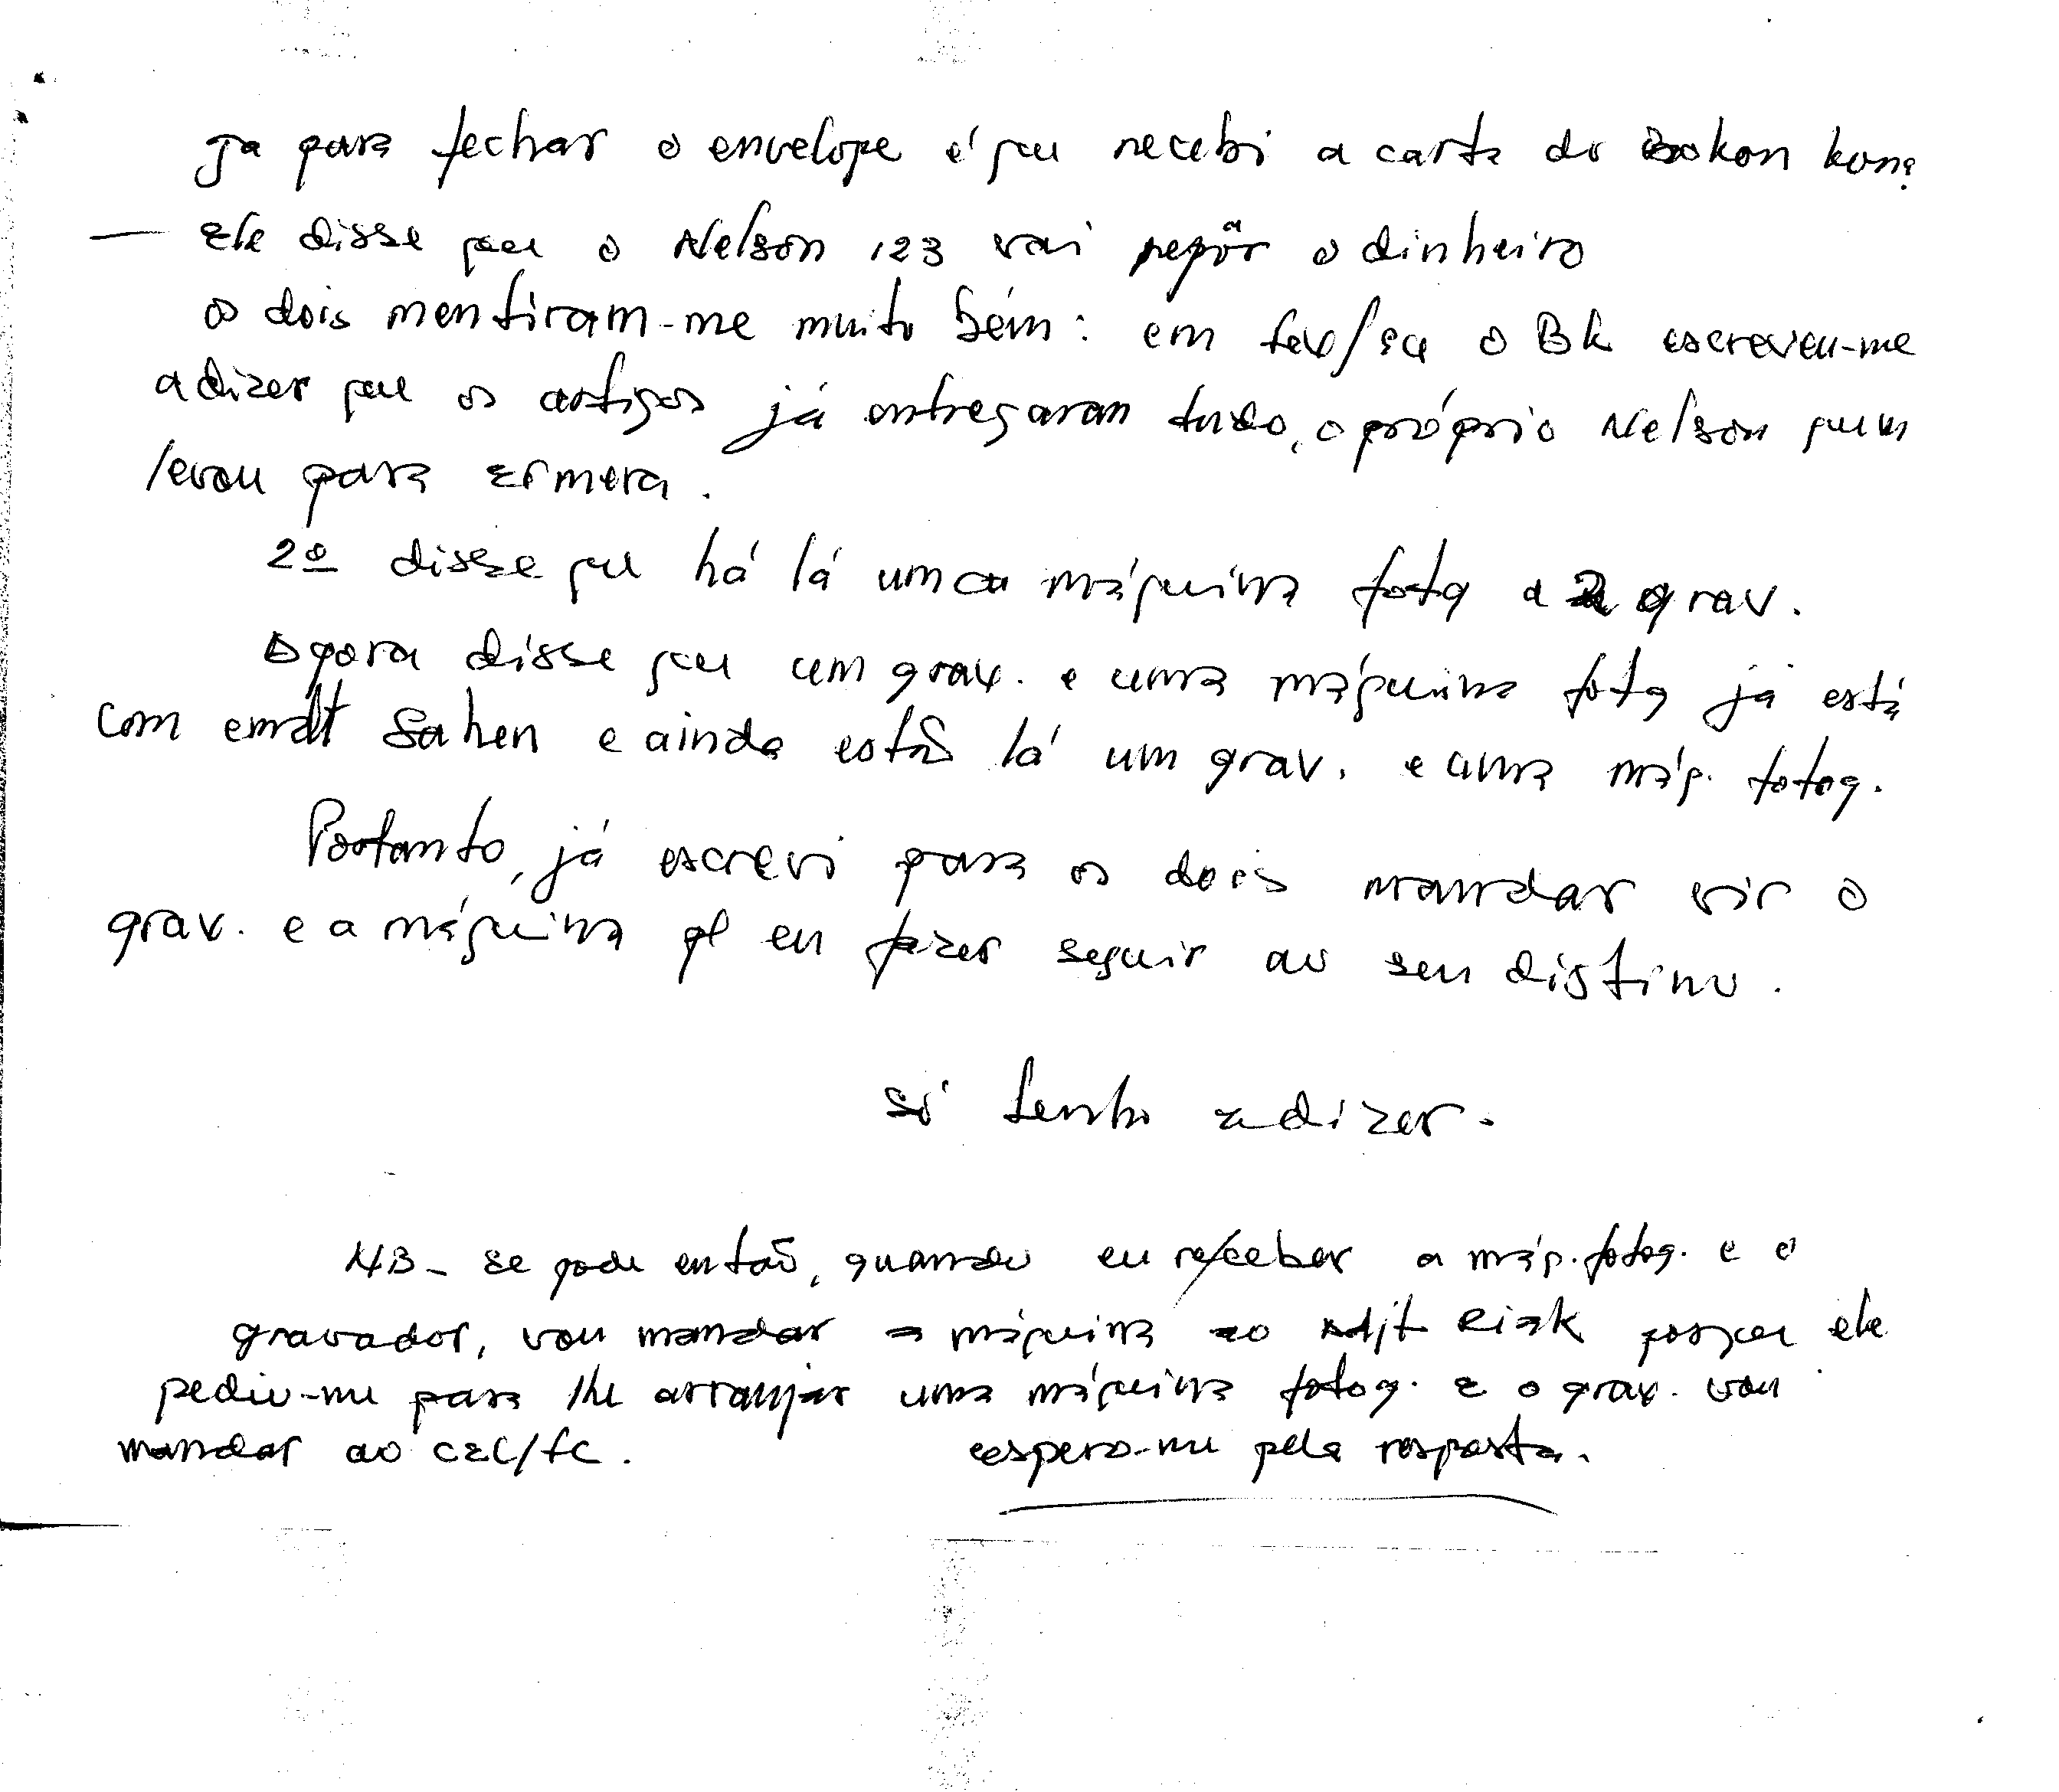 Ja para fechar o envelope é que recebi a carta do Bokon kon:
— Ele disse que o Nelson 123 vai repôr o dinheiro
os dois mentiram-me muito bem: em fev/94 o Bk escreveu-me
a dizer que os artigos já entregaram tudo, o próprio Nelson quem
levou para Ermera.
2º disse que há lá uma máquina fotg e 2 grav.
Agora disse que um grav. e uma máquina fotg já está
com cmdt Sahen e ainda estão lá um grav. e uma máq. fotog.
Portanto, já escrevi para os dois mandar vir o
grav. e a máquina pª eu fazer seguir ao seu distino.
Só tenho a dizer.
NB - Se pode então, quando eu receber a máq. fotog. e o
gravador, vou mandar a máquina ao Adjt Riak porque ele
pediu-me para lhe arranjar uma máquina fotog. e o grav. vou
mandar ao CEL/FC. espero-me pela resposta.